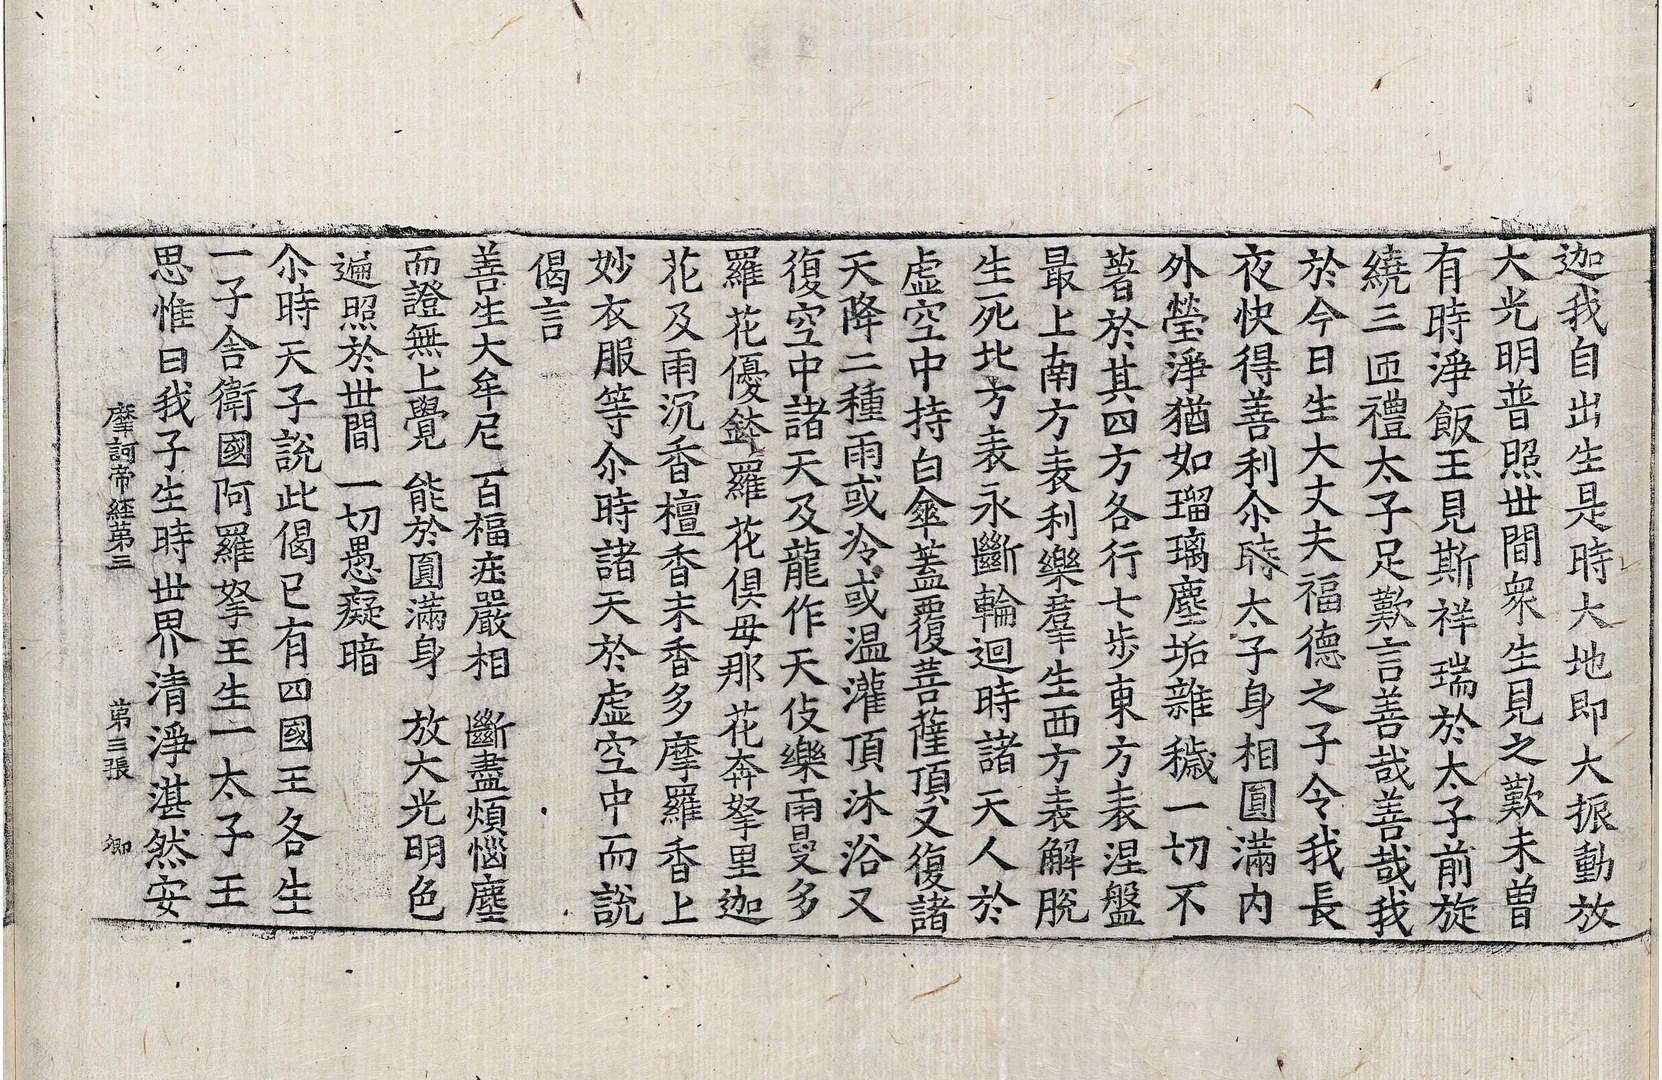 迦我自出生是時大地即大振動放
大光明普照丗間衆生見之歎未曽
有時淨飯王見斯祥瑞於太子前旋
繞三匝禮太子足歎言善哉善哉我
於今日生大丈夫福德之子令我長
夜快得善利尒時太子身相圓滿内
外瑩淨猶如瑠璃塵垢雜穢一切不
著於其四方各行七步東方表涅盤
最上南方表利樂羣生西方表解脫
生死北方表永斷輪迴時諸天人於
虛空中持白傘蓋覆菩薩頂又復諸
天降二種雨或冷或温灌頂沐浴又
復空中諸天及龍作天伎樂雨曼多
羅花優鉢羅花俱毋那花奔拏里迦
花及雨沉香檀香末香多摩羅香上
妙衣服等尒時諸天於虛空中而說
偈言
善生大牟尼 百福莊嚴相 斷盡煩惱塵
而證無上覺 能於圓滿身 放大光明色
遍照於丗間 一切愚癡暗
尒時天子說此偈已有四國王各生
一子舍衛國阿羅拏王生一太子王
思惟曰我子生時丗界清淨湛然安
摩訶帝經第三 第三張 卿